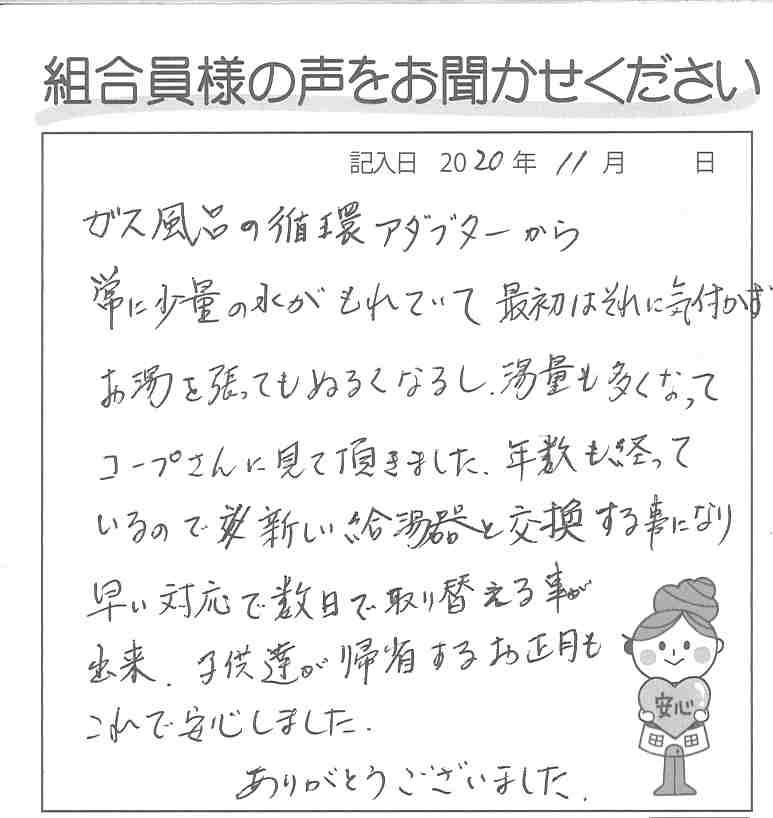 組合員様の声をお聞かせください
記入日 2020年 11月 日
ガス風呂の循環アダプターから
常に少量の水がもれていて最初はそれに気付かず
お湯を張ってもぬるくなるし、湯量も多くなって
コープさんに見て頂きました、年数も経って
いるので新しい給湯器と交換する事になり
早い対応で数日で取り替える事が
出来、子供達が帰省するお正月も
これで安心しました.
ありがとうございました.
安心